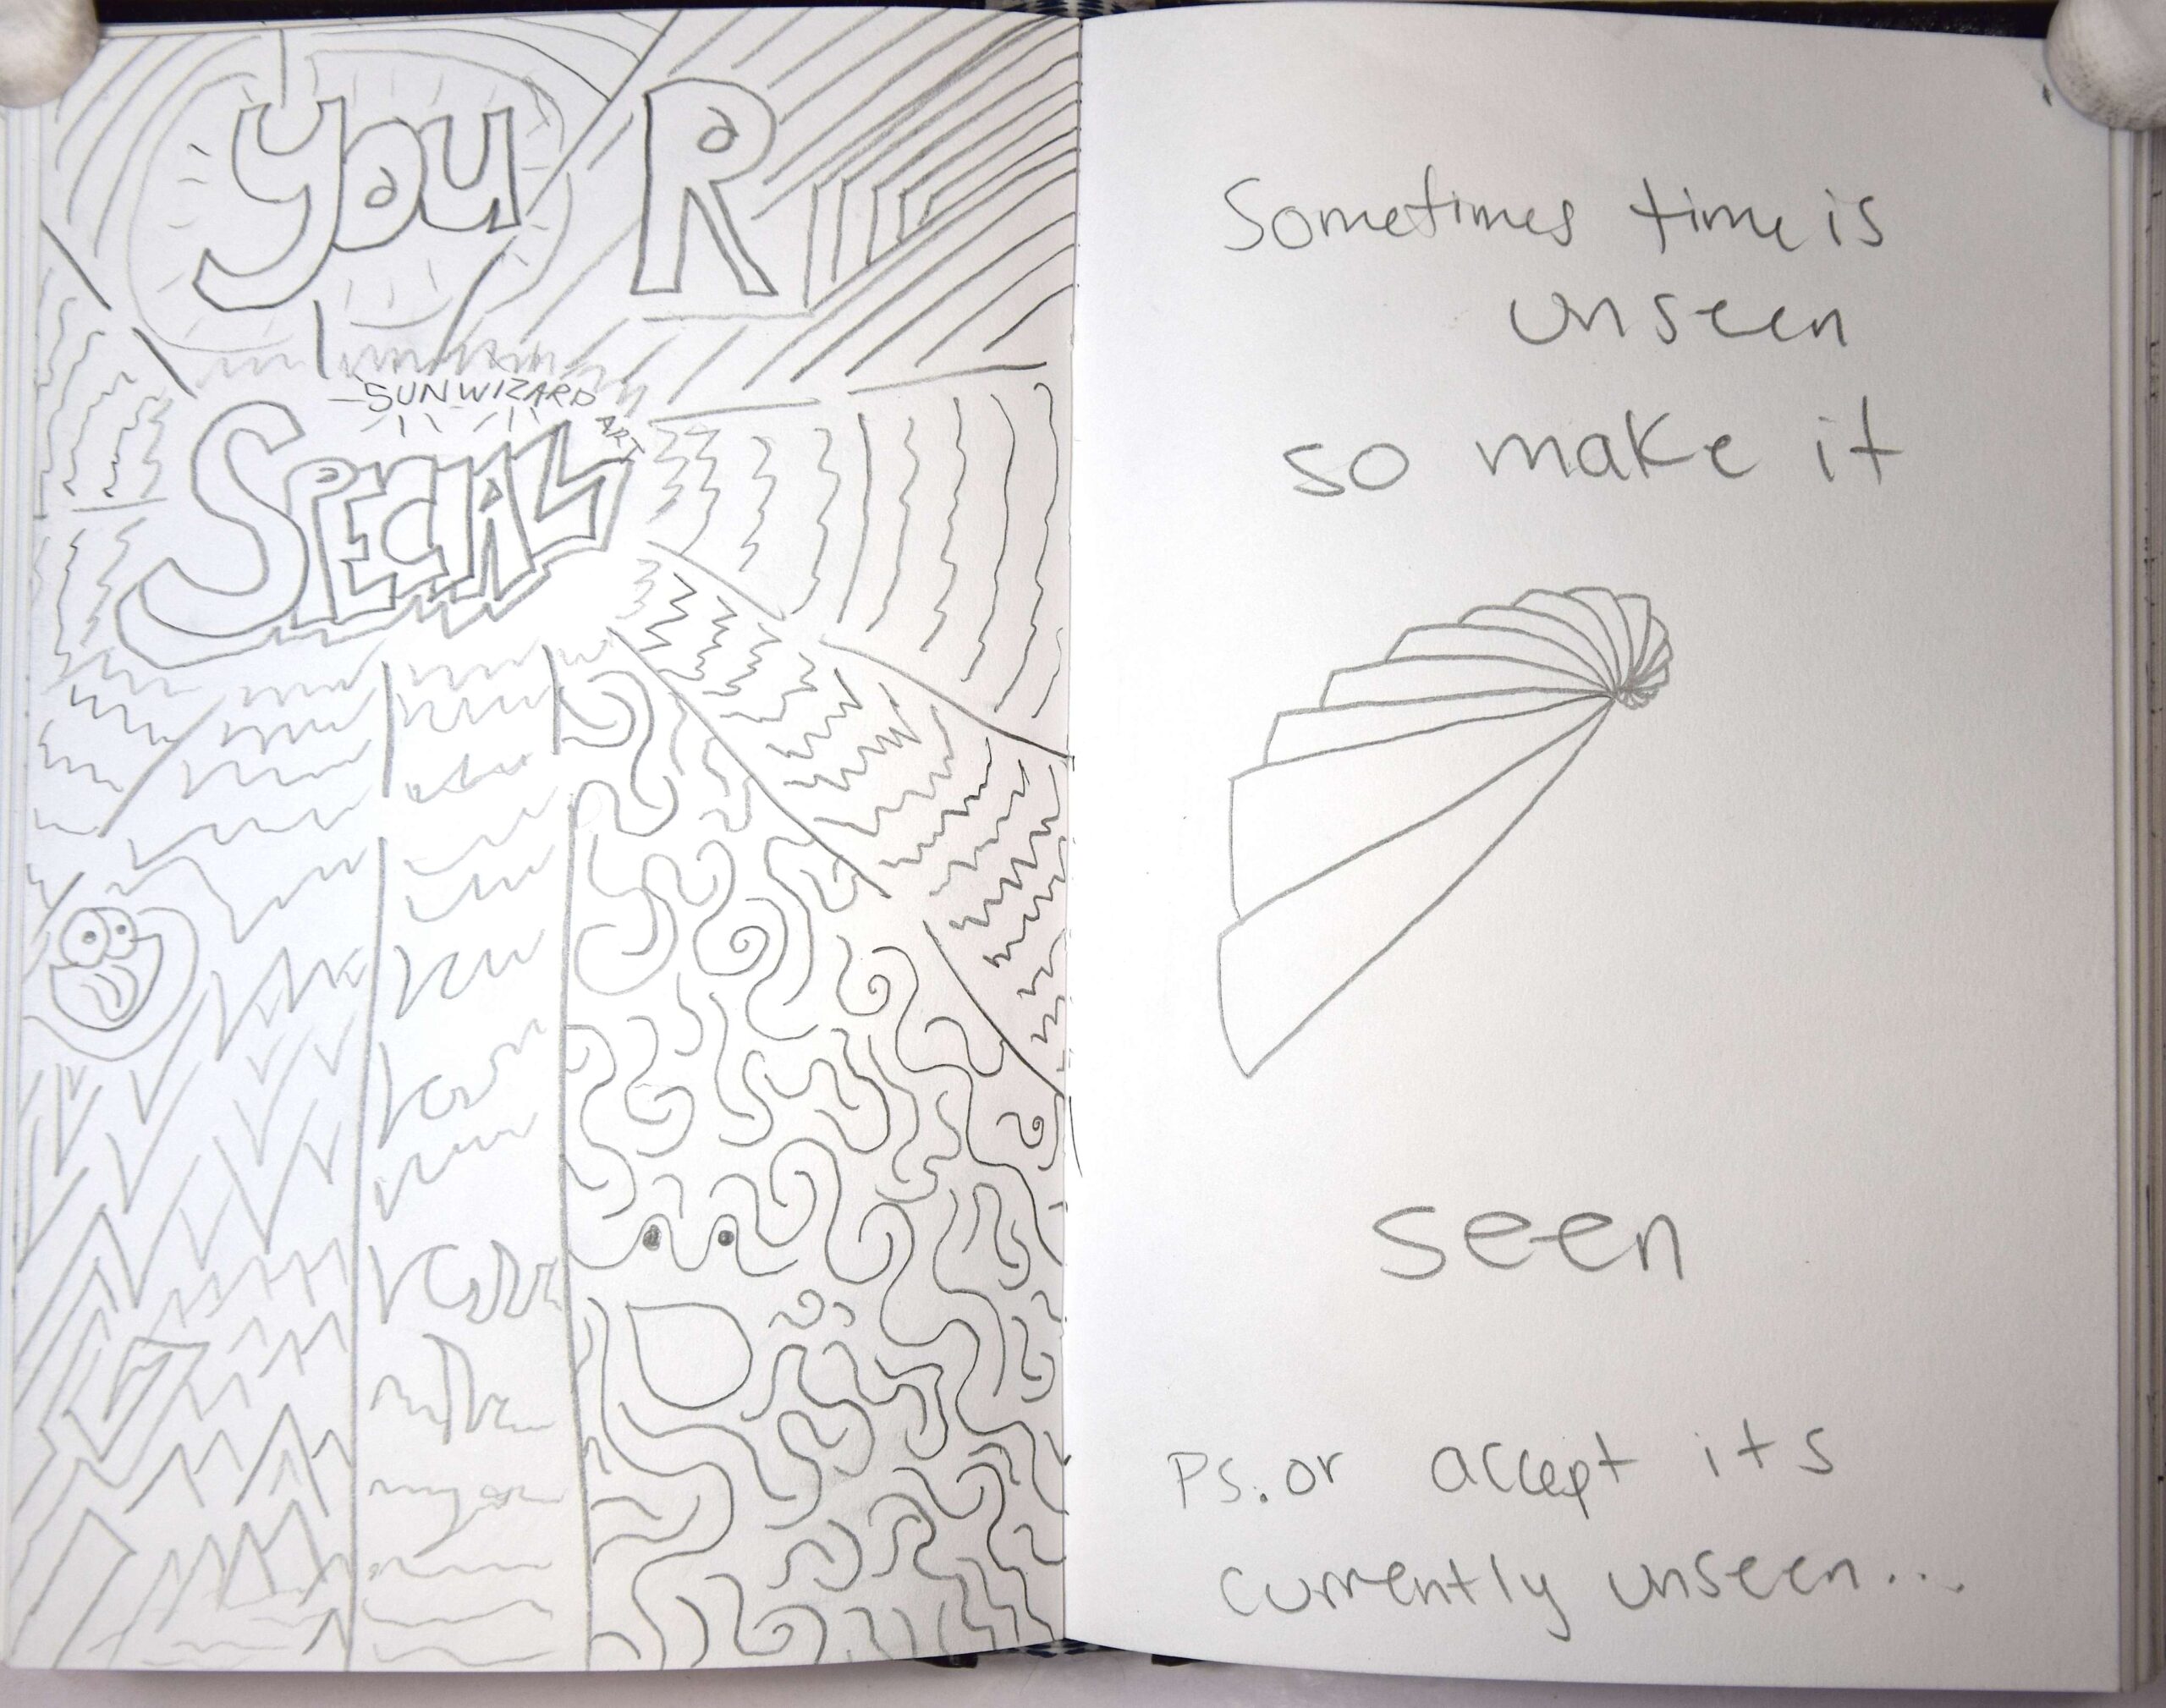 you R
-SUNWIZARD
ART
SPECIAL
Sometimes time is
unseen
so make it
seen
Ps. or accept its
currently unseen...